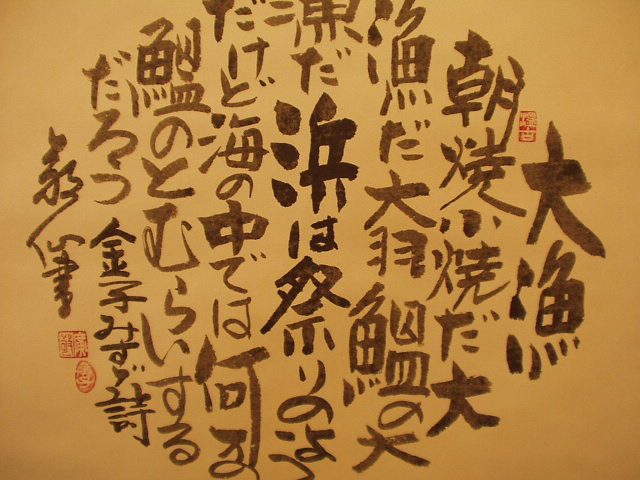 大漁
朝焼小焼だ大
漁だ大羽鰮の大
漁だ浜は祭りのよう
だけど海の中では何万
鰮のとむらいする
だろう
金子みすゞ詩